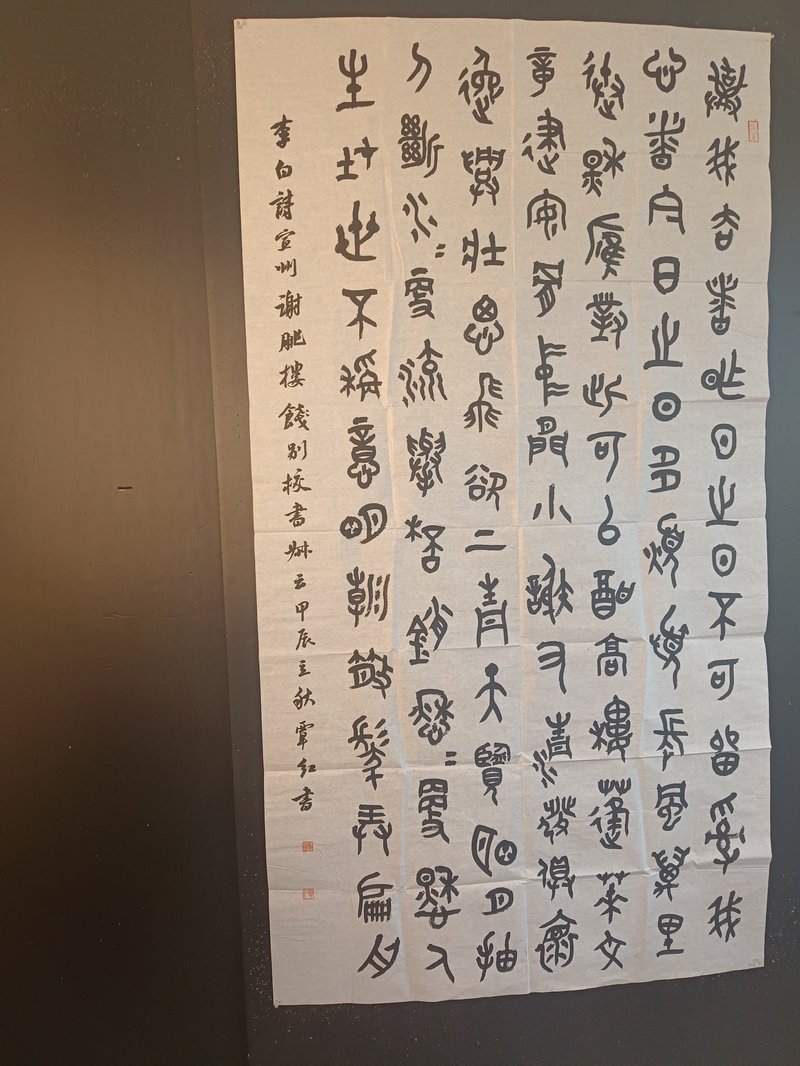 棄我去者昨日之日不可留亂我
心者今日之日多煩憂長風萬里
送秋雁對此可以酣高樓蓬萊文
章建安骨中間小謝又清發俱懷
逸興壯思飛欲上青天覽明月抽
刀斷水〓更流舉杯銷愁〓更愁人
生在世不稱意明朝散髮弄扁舟
李白詩宣州謝朓樓餞別校書叔云甲辰立秋覃紅書